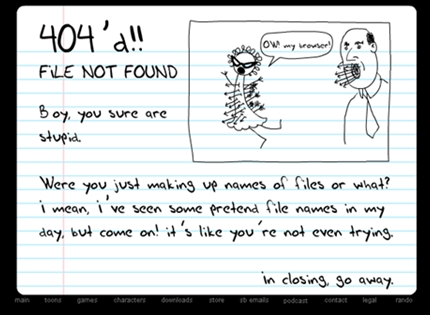 404'd!!
FILE NOT FOUND
OW! my browser!
Boy, you sure are
stupid.
Were you just making up names of files or what?
i mean, i've seen some pretend file names in my
day, but come on! it's like you're not even trying.
in closing, go away.
main toons games characters downloads store sb emails podcast contact legal rando